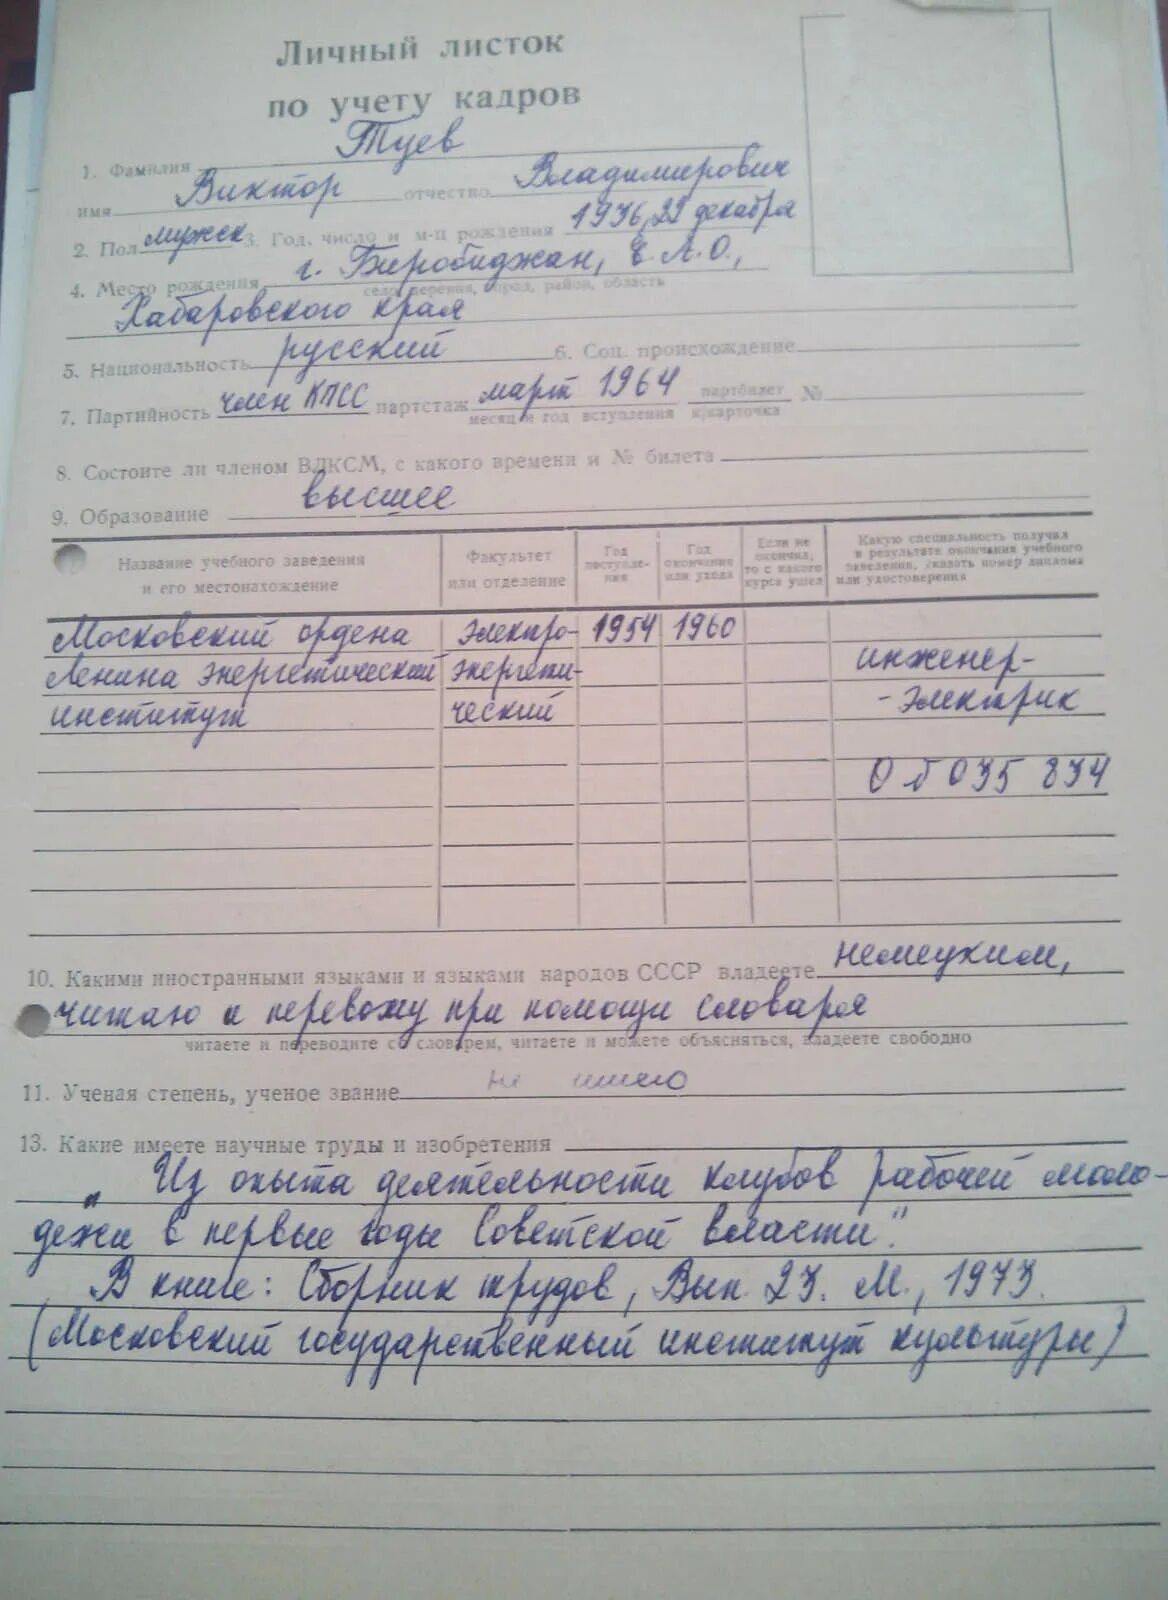 Личный листок
по учету кадров
1. Фамилия Туев
имя Виктор отчество Владимирович
2. Пол мужск 3. Год, число и м-ц рождения 1936, 29 декабря
4. Место рождения г. Биробиджан, Е.А.О.,
село, деревня, город, район, область
Хабаровского края
5. Национальность русский 6. Соц. происхождение
7. Партийность член КПСС партстаж март 1964 партбилет №
месяц и год вступления к/карточка
8. Состоите ли членом ВЛКСМ, с какого времени и № билета
9. Образование высшее
Название учебного заведения и его местонахождение
Факультет или отделение
Год поступления
Год окончания или ухода
Если не окончил, то с какого курса ушел
Какую специальность получил в результате окончания учебного заведения, указать номер диплома или удостоверения
Московский ордена электро- 1954 1960
Ленина энергетический энергети- инженер-
институт ческий -электрик
035 834
10. Какими иностранными языками и языками народов СССР владеете немецким,
читаю и перевожу при помощи словаря
читаете и переводите со словарем, читаете и можете объясняться, владеете свободно
11. Ученая степень, ученое звание не имею
13. Какие имеете научные труды и изобретения
„Из опыта деятельности клубов рабочей моло-
дежи в первые годы Советской власти."
В книге: Сборник трудов, Вып. 23. М., 1973.
(Московский государственный институт культуры)